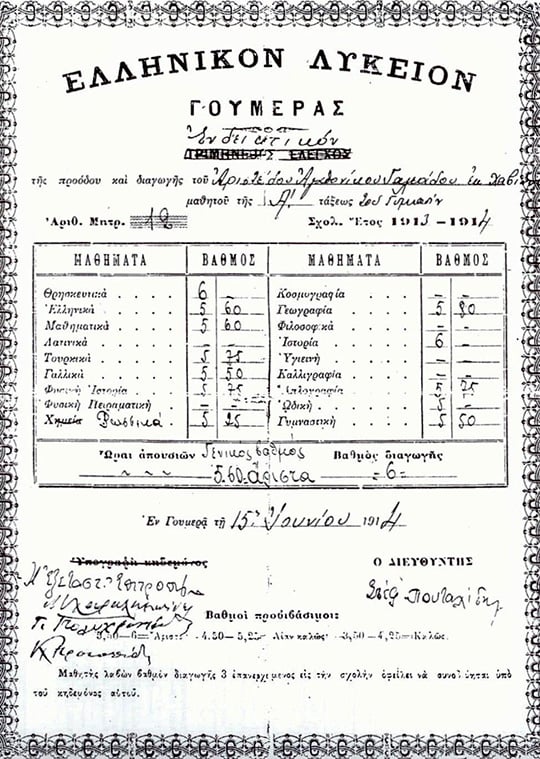 ΕΛΛΗΝΙΚΟΝ ΛΥΚΕΙΟΝ
ΓΟΥΜΕΡΑΣ
Ἐνδεικτικόν
ΤΡΙΜΗΝΟΣ ΕΛΕΓΧΟΣ
τῆς προόδου καὶ διαγωγῆς τοῦ Ἀριστείδου ἐκ
μαθητοῦ τῆς Α' τάξεως
Ἀριθ. Μητρ. 12 Σχολ. Ἔτος 1913-1914
ΜΑΘΗΜΑΤΑ ΒΑΘΜΟΣ ΜΑΘΗΜΑΤΑ ΒΑΘΜΟΣ
Θρησκευτικὰ . . . . 6 – Κοσμογραφία . . . . – –
Ἑλληνικὰ . . . . 5 60 Γεωγραφία . . . . 5 80
Μαθηματικὰ . . . . 5 60 Φιλοσοφικὰ . . . . – –
Λατινικὰ . . . . – – Ἱστορία . . . . 6 –
Τουρκικὰ . . . . 5 75 Ὑγιεινὴ . . . . – –
Γαλλικὰ . . . . 5 50 Καλλιγραφία . . . . – –
Φυσικὴ Ἱστορία . . . . 5 75 Ἁπλογραφία . . . . 5 75
Φυσικὴ Πειραματικὴ . . – – Ὠδικὴ . . . . 5 –
Χημεία Ρωσσικά . . 5 25 Γυμναστικὴ . . . . 5 50
Ὧραι ἀπουσιῶν Γενικὸς βαθμὸς Βαθμὸς διαγωγῆς
5.60 Ἄριστα –6–
Ἐν Γουμερᾷ τῇ 15ῃ Ἰουνίου 1914
Ὑπογραφὴ κηδεμόνος Ο ΔΙΕΥΘΥΝΤΗΣ
Ἡ Ἐξεταστ. Ἐπιτροπή
Βαθμοὶ προϋβάσιμοι:
5,30—6= Ἄριστα 4.50 - 5,25= Λίαν καλῶς· 3,50 - 4,25=Καλῶς.
Μαθητὴς λαβὼν βαθμὸν διαγωγῆς 3 ἐπανερχόμενος εἰς τὴν σχολὴν ὀφείλει νὰ συνοδεύηται ὑπὸ
τοῦ κηδεμόνος αὐτοῦ.